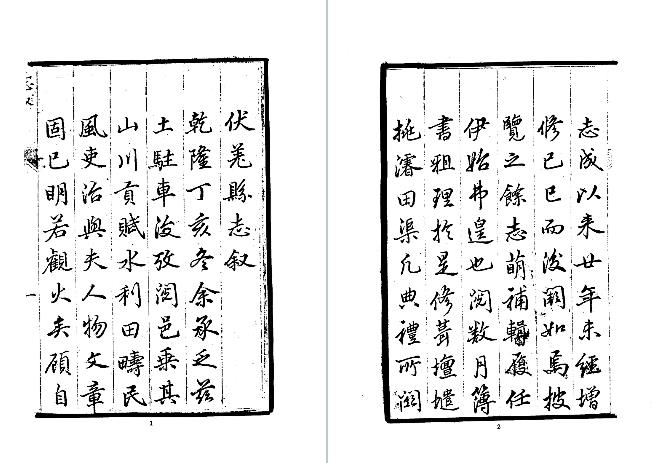 伏羌縣志叙
乾隆丁亥冬余承乏茲
土駐車後攷閱邑乘其
山川貢賦水利田疇民
風吏治與夫人物文章
固已明若觀火矣顧自
1
志成以来廿年未經增
修己巳而後闕如焉披
覽之餘志萌補輯履任
伊始弗遑也閱數月簿
書粗理於是修葺壇壝
挑濬田渠凡典禮所關
2